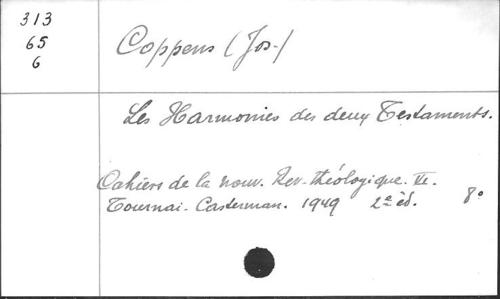 313
65
6
Coppens (Jos.)
Les Harmonies des deux Testaments.
Cahiers de la nouv. Rev. théologique. VI.
Tournai. Casterman. 1949 2e éd. 8°